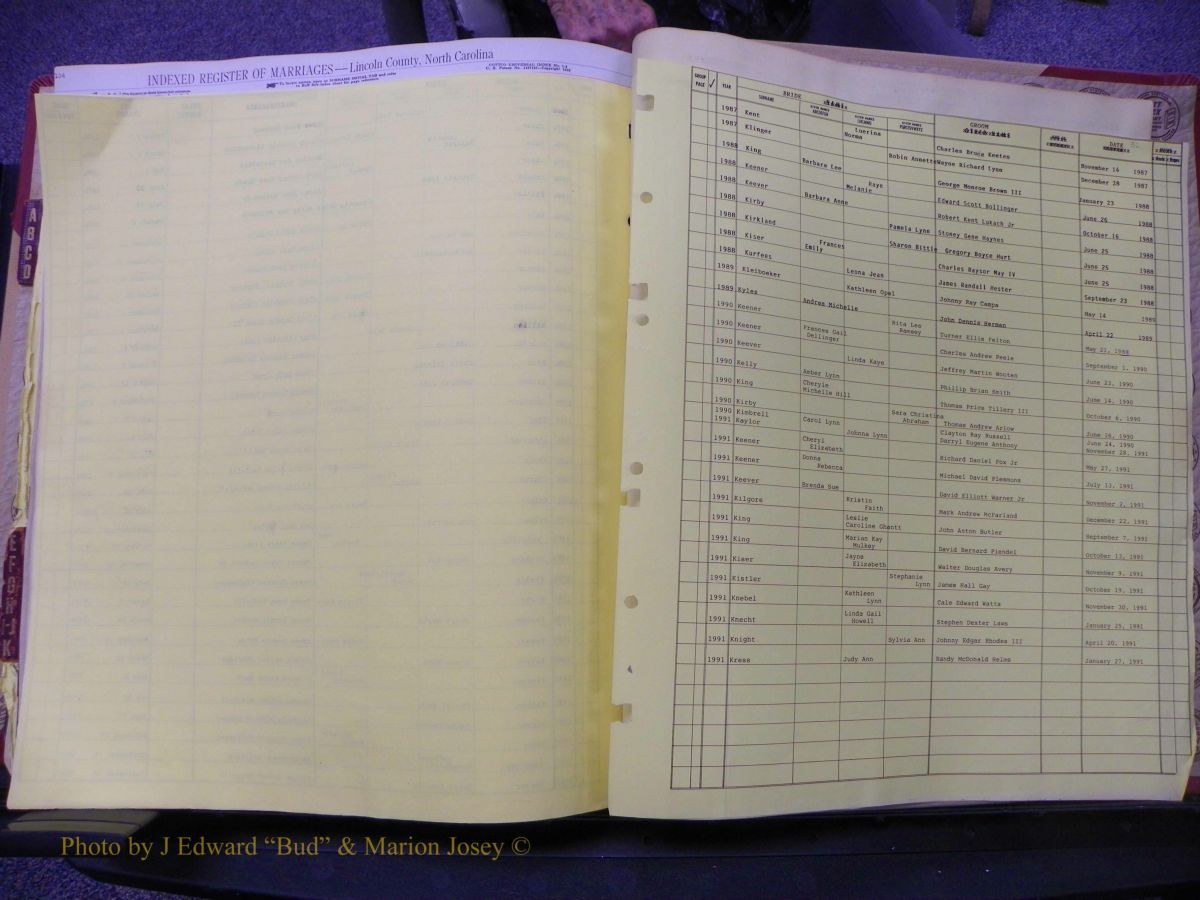 104
INDEXED REGISTER OF MARRIAGES—Lincoln County, North Carolina
A
B
C
D
E
F
G
H
I-J
K
GROUP PAGE YEAR SURNAME BRIDE GROOM DATE
1987 Kent Luerina Charles Bruce Keeten November 14 1987
1987 Klinger Norma Wayne Richard Lynn December 28 1987
1988 King Robin Annette George Monroe Brown III January 23 1988
1988 Keener Barbara Lee Edward Scott Bollinger June 26 1988
1988 Keever Raye Melanie Robert Kent Lukach Jr October 16 1988
1988 Kirby Barbara Anne Stoney Gene Haynes June 25 1988
1988 Kirkland Pamela Lynn Gregory Boyce Hurt June 25 1988
1988 Kiser Frances Emily Sharon Charles Raysor May IV June 25 1988
1988 Kurfees Leona Jean James Randall Hester September 23 1988
1989 Kleiboeker Kathleen Opal Johnny Ray Campa May 14 1989
1989 Kyles Andrea Michelle John Dennis Herman April 22 1989
1990 Keener Rita Lee Ramsey Turner Ellis Felton May 22, 1988
1990 Keener Frances Gail Dellinger Charles Andrew Peele September 1, 1990
1990 Keever Linda Kaye Jeffrey Martin Wooten June 23, 1990
1990 Kelly Amber Lynn Phillip Brian Smith June 14, 1990
1990 King Cheryle Michelle Hill Thomas Price Tillery III October 6, 1990
1990 Kirby Sara Christina Abraham Thomas Andrew Arlow June 26, 1990
1990 Kimbrell Carol Lynn Clayton Ray Russell June 24, 1990
1991 Kaylor Johnna Lynn Darryl Eugene Anthony November 28, 1991
1991 Keener Cheryl Elizabeth Richard Daniel Fox Jr May 27, 1991
1991 Keener Donna Rebecca Michael David Plemmons July 13, 1991
1991 Keever Brenda Sue David Elliott Warner Jr November 2, 1991
1991 Kilgore Kristin Faith Mark Andrew McFarland December 22, 1991
1991 King Leslie Caroline Ghantt John Anton Butler September 7, 1991
1991 King Marion Kay Mulkey David Bernard Piendel October 12, 1991
1991 Kiser Jayne Elizabeth Walter Douglas Avery November 9, 1991
1991 Kistler Stephanie Lynn James Hall Gay October 19, 1991
1991 Knebel Kathleen Lynn Cale Edward Watts November 30, 1991
1991 Knecht Linda Gail Howell Stephen Dexter Laws January 25, 1991
1991 Knight Sylvia Ann Johnny Edgar Rhodes III April 20, 1991
1991 Kress Judy Ann Randy McDonald Helms January 27, 1991
Photo by J Edward “Bud” & Marion Josey ©